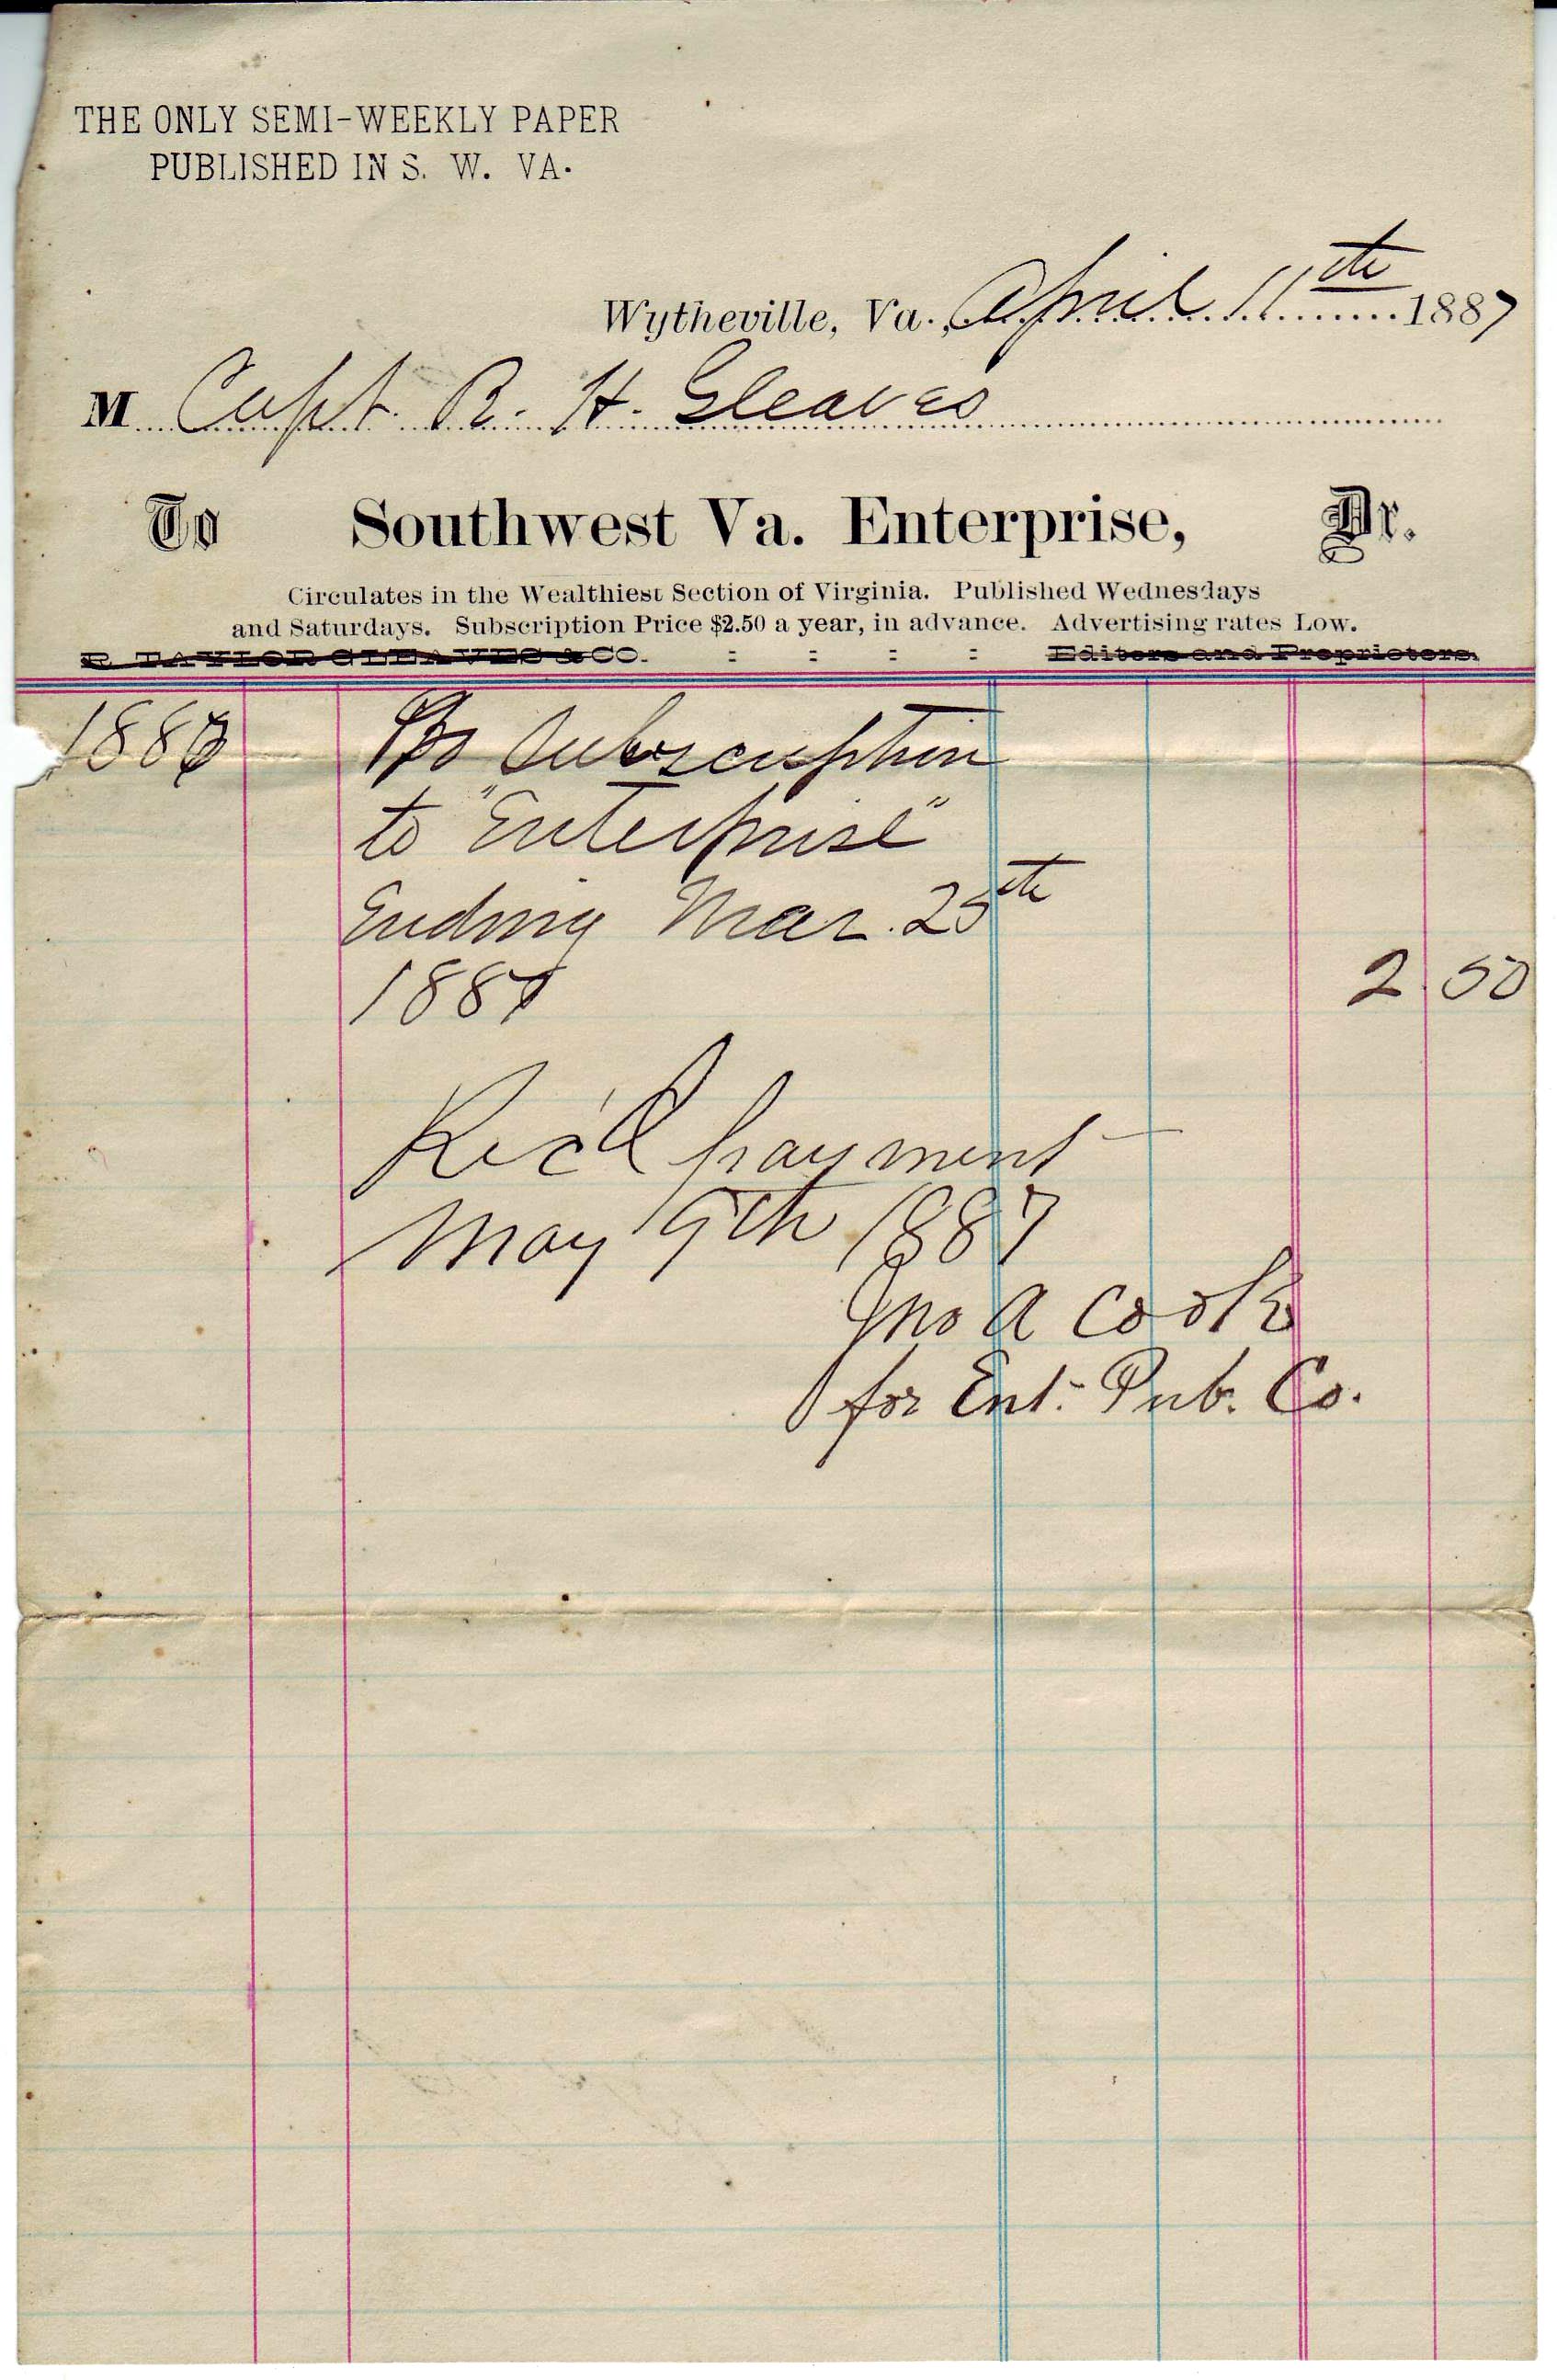 THE ONLY SEMI-WEEKLY PAPER
PUBLISHED IN S. W. VA.
Wytheville, Va., April 11th 1887
M Capt. R. H. Gleaves
To Southwest Va. Enterprise, Dr.
Circulates in the Wealthiest Section of Virginia. Published Wednesdays
and Saturdays. Subscription Price $2.50 a year, in advance. Advertising rates Low.
R. TAYLOR GLEAVES & CO. : : : : Editors and Proprietors.
1886 subscription
to "Enterprise"
Ending Mar. 25th
1887 2.50
Rec'd payment
May 9th 1887
Jno A Cook
for Ent. Pub. Co.